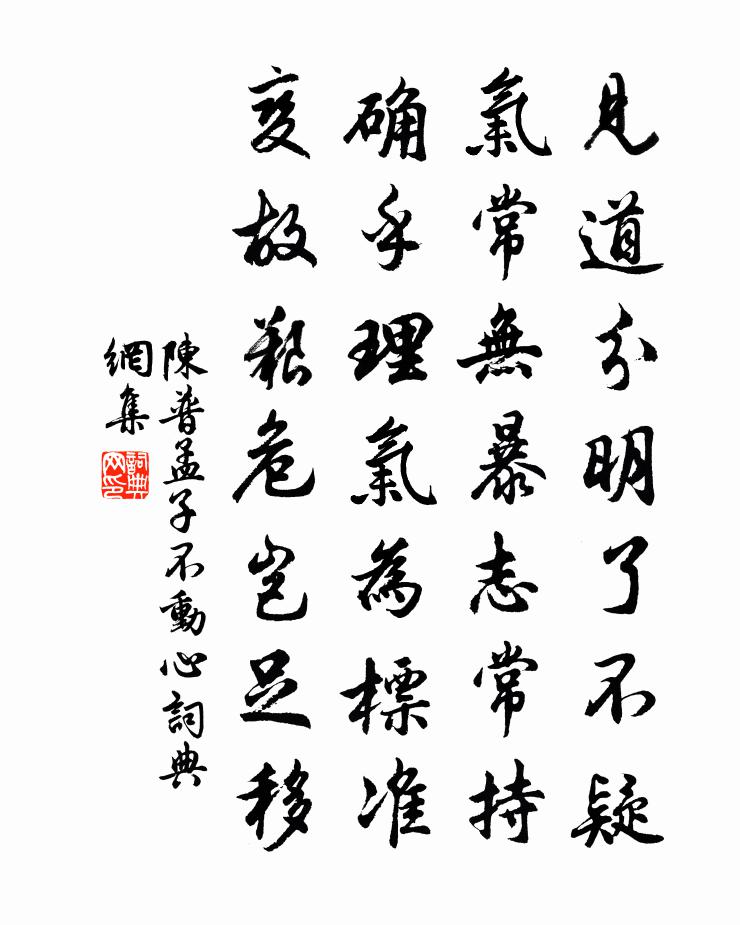 見道分明了不疑
氣常無暴志常持
确乎理氣為標准
変故艱危岂足移
陳普孟子不動心詞典
網集
詞典
网印